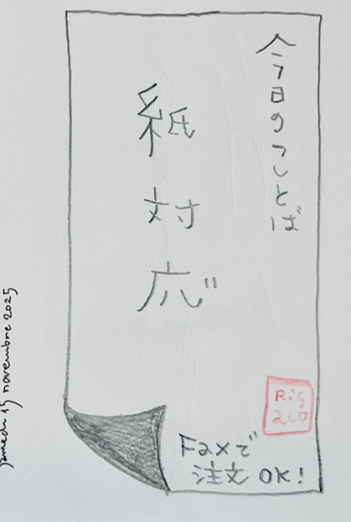 今日のことば
紙対応
Faxで
注文 OK!
samedi 15 novembre 2025